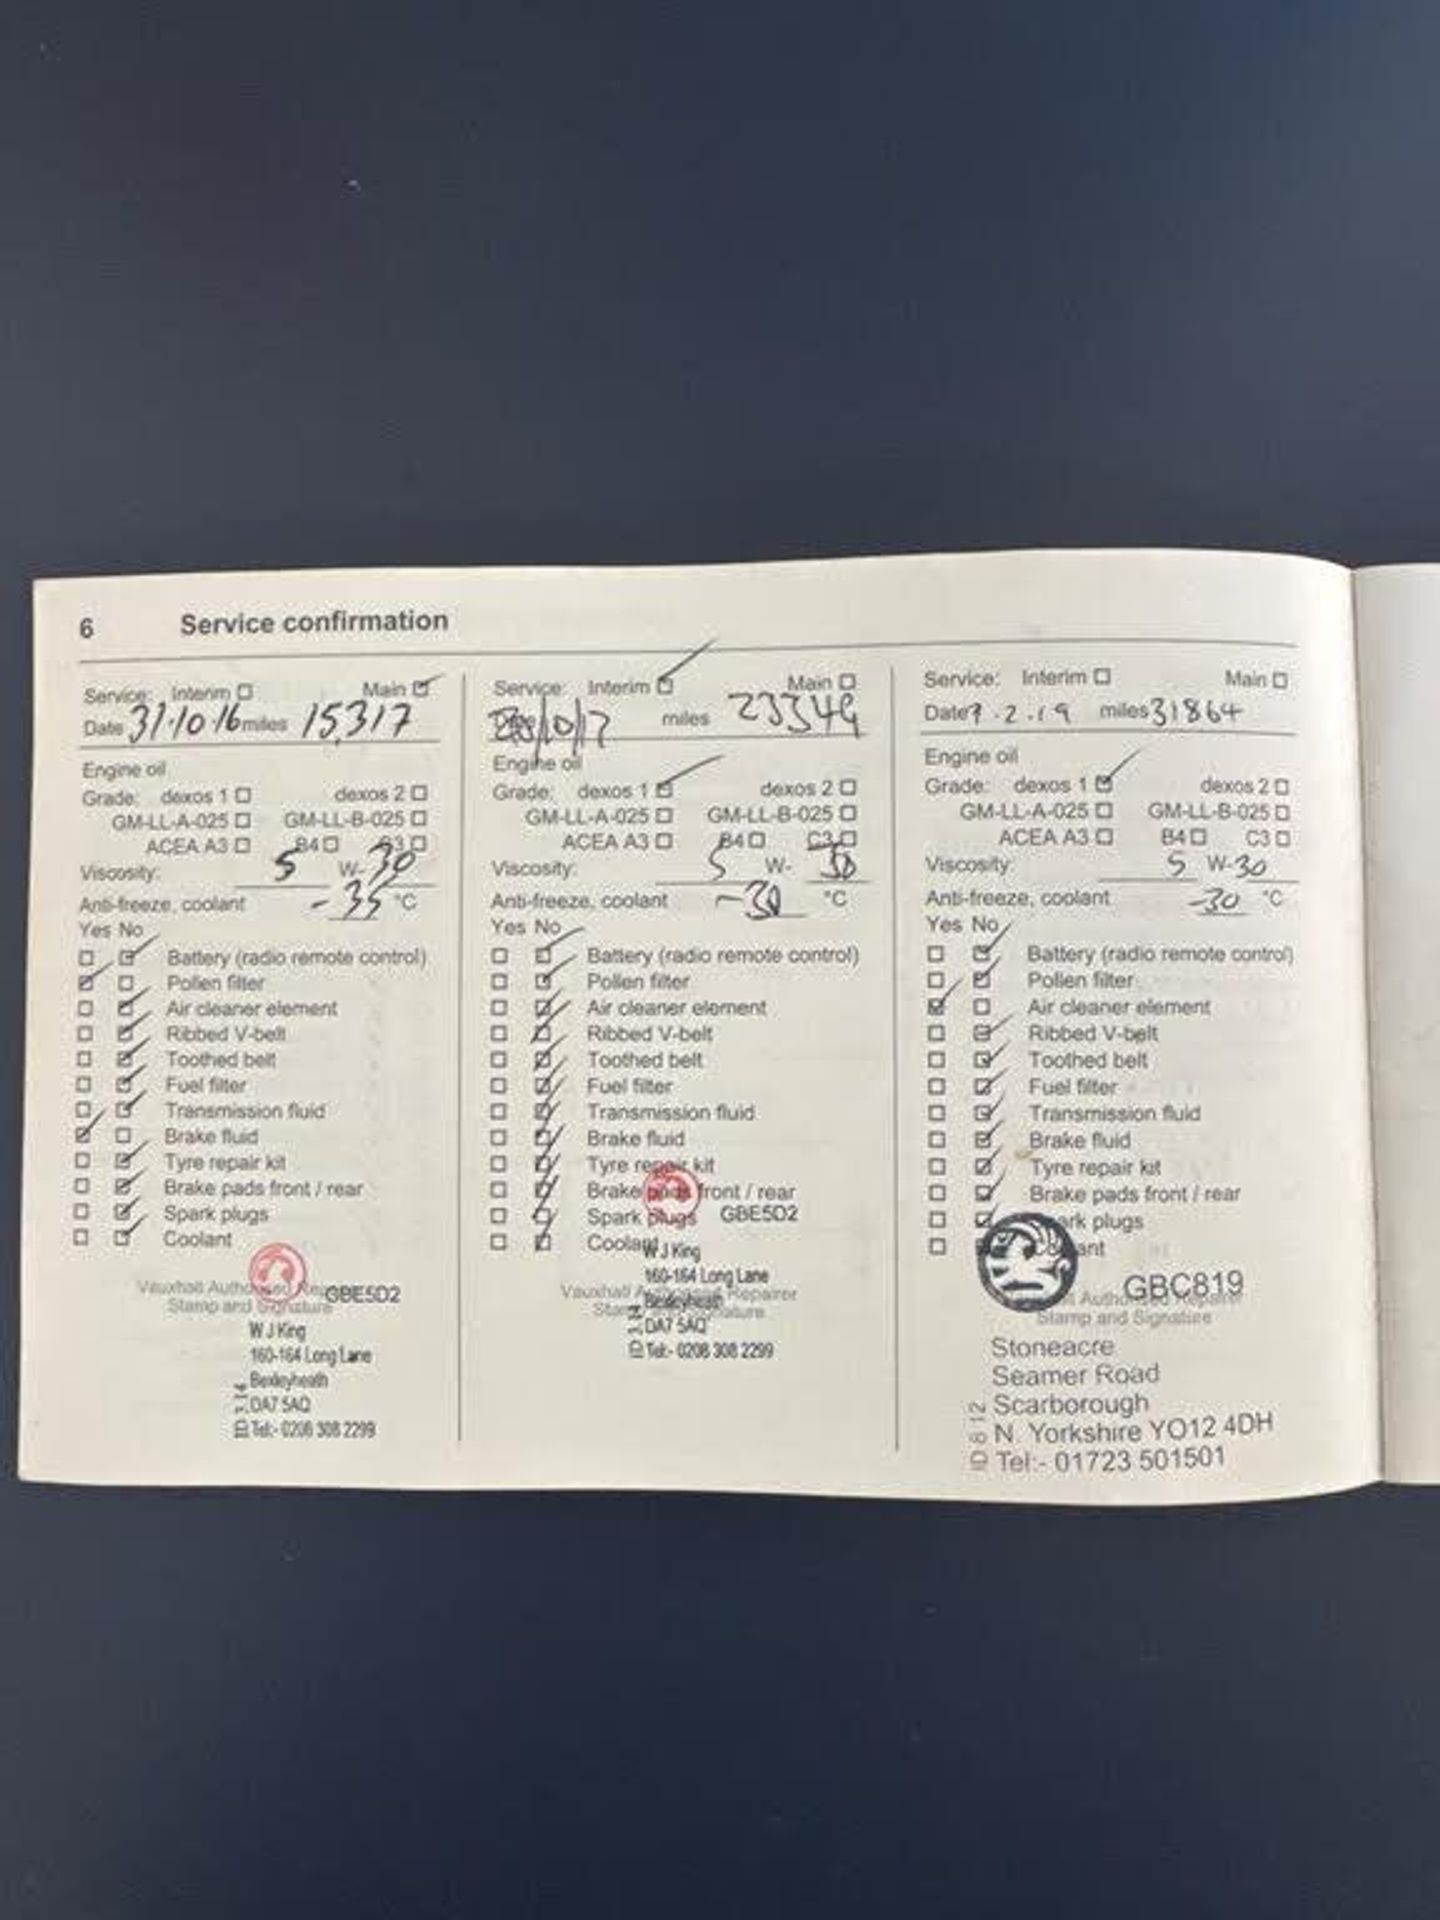 6 Service confirmation
Service: Interim ☐ Main ☑
Date 31.10.16 miles 15,317
Engine oil
Grade: dexos 1 ☐ dexos 2 ☐
GM-LL-A-025 ☐ GM-LL-B-025 ☐
ACEA A3 ☐ B4 ☐ C3 ☐
Viscosity: 5 W-30
Anti-freeze, coolant -35 °C
Yes No
☐ ☑ Battery (radio remote control)
☑ ☐ Pollen filter
☐ ☑ Air cleaner element
☐ ☑ Ribbed V-belt
☐ ☑ Toothed belt
☐ ☑ Fuel filter
☐ ☑ Transmission fluid
☑ ☐ Brake fluid
☐ ☑ Tyre repair kit
☐ ☑ Brake pads front / rear
☐ ☑ Spark plugs
☐ ☑ Coolant
Vauxhall Authorised GBE5D2
Stamp and Signature
W J King
160-164 Long Lane
Bexleyheath
DA7 5AQ
Tel:- 0208 308 2299
Service: Interim ☑ Main ☐
/10/17 miles 23349
Engine oil
Grade: dexos 1 ☑ dexos 2 ☐
GM-LL-A-025 ☐ GM-LL-B-025 ☐
ACEA A3 ☐ B4 ☐ C3 ☐
Viscosity: 5 W- 30
Anti-freeze, coolant -30 °C
Yes No
☐ ☑ Battery (radio remote control)
☐ ☑ Pollen filter
☐ ☑ Air cleaner element
☐ ☑ Ribbed V-belt
☐ ☑ Toothed belt
☐ ☑ Fuel filter
☐ ☑ Transmission fluid
☐ ☑ Brake fluid
☐ ☑ Tyre repair kit
☐ ☑ Brake pads front / rear
☐ ☑ Spark plugs GBE5D2
☐ ☑ Coolant
W J King
160-164 Long Lane
Vauxhall Repairer
Bexleyheath
DA7 5AQ
Tel:- 0208 308 2299
Service: Interim ☐ Main ☐
Date 7.2.19 miles 31864
Engine oil
Grade: dexos 1 ☑ dexos 2 ☐
GM-LL-A-025 ☐ GM-LL-B-025 ☐
ACEA A3 ☐ B4 ☐ C3 ☐
Viscosity: 5 W-30
Anti-freeze, coolant -30 °C
Yes No
☐ ☑ Battery (radio remote control)
☐ ☑ Pollen filter
☑ ☐ Air cleaner element
☐ ☑ Ribbed V-belt
☐ ☑ Toothed belt
☐ ☑ Fuel filter
☐ ☑ Transmission fluid
☐ ☑ Brake fluid
☐ ☑ Tyre repair kit
☐ ☑ Brake pads front / rear
☐ ☑ Spark plugs
☐ ☑ Coolant
GBC819
Authorised Repairer
Stamp and Signature
Stoneacre
Seamer Road
Scarborough
N. Yorkshire YO12 4DH
Tel:- 01723 501501
ID 8 12